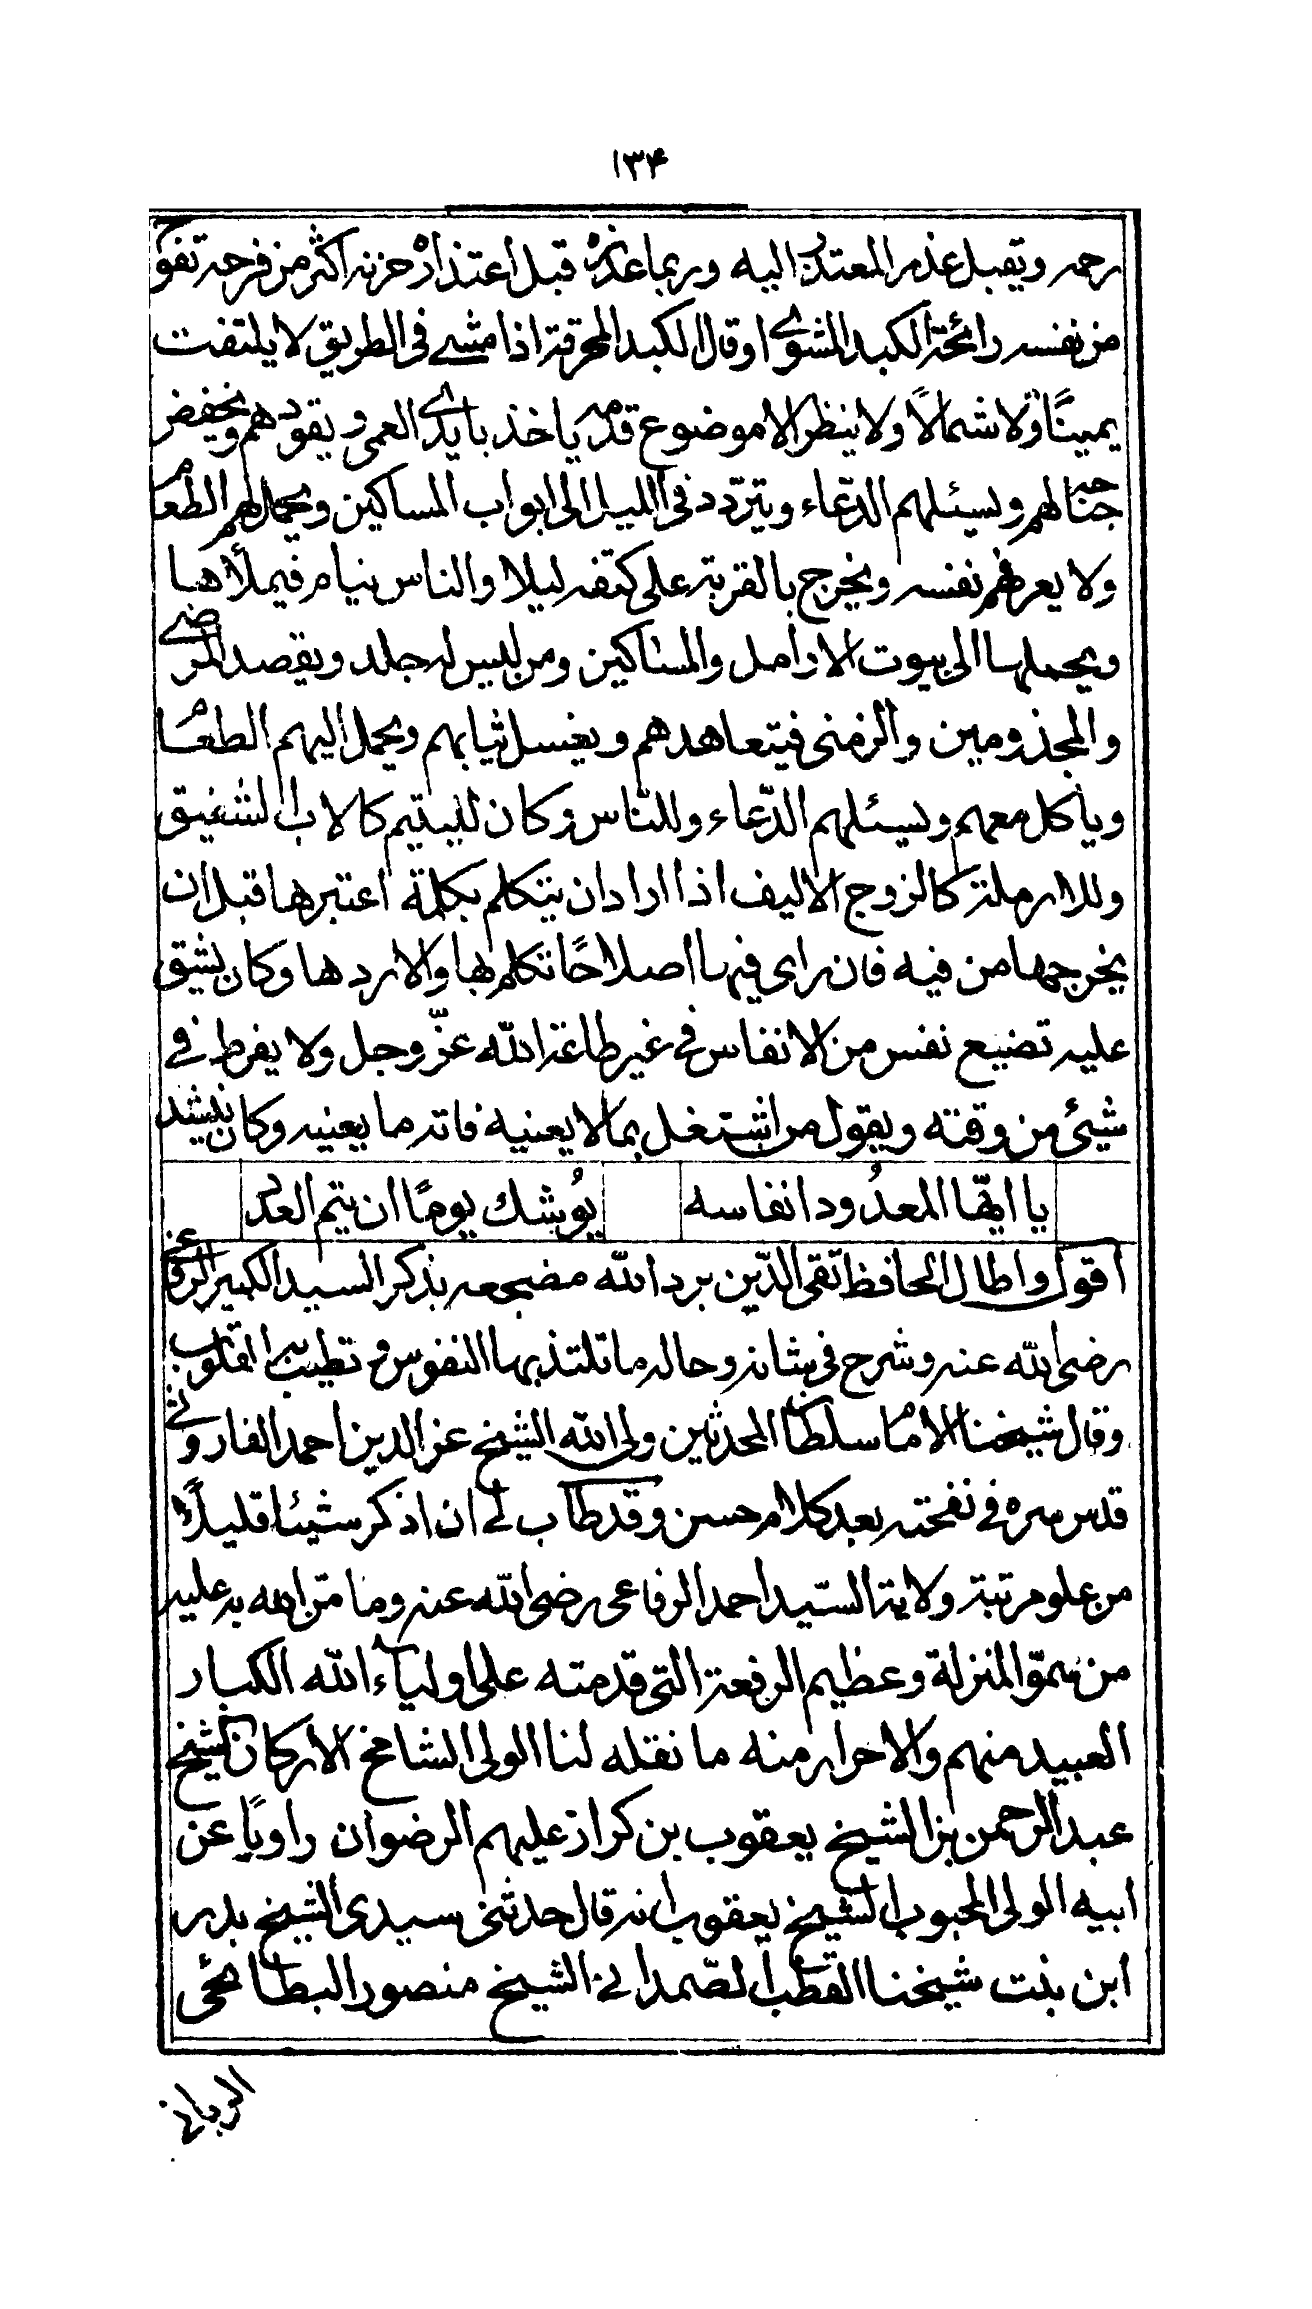 ١٣۴
رحمه ويقبل عذر المعتذر اليه وربما عذره قبل اعتذاره حزنه اكثر من فرحه تفوح
من نفسه رائحة الكبد المشوى او قال الكبد المحرقة اذا مشى فى الطريق لا يلتفت
يمينًا ولا شمالًا ولا ينظر الا موضع قدمه ياخذ بايدى العمى ويقودهم ويخفض
جنابه لهم ويسئلهم الدّعاء ويتردّد فى الليل الى ابواب المساكين ويحمل لهم الطعام
ولا يعرفهم نفسه ويخرج بالقربة على كتفه ليلا والناس نيام فيملأها
ويحملها الى بيوت الارامل والمساكين ومن ليس له جلد ويقصد المرضى
والمجذومين والزمنى فيتعاهدهم ويغسل ثيابهم ويحمل اليهم الطعام
ويأكل معهم ويسئلهم الدّعاء وللنّاس وكان لليتيم كالاب الشفيق
وللارملة كالزوج الاليف اذا اراد ان يتكلم بكلمة اعتبرها قبل ان
يخرجها من فيه فان راى فيها اصلاحًا تكلم بها والا ردها وكان يشق
عليه تضييع نفس من الانفاس فى غير طاعة الله عزّ وجل ولا يفرط فى
شيئ من وقته ويقول من اشتغل بما لا يعنيه فاته ما يعنيه وكان ينشد
يا ايّها المعدُود انفاسه يوُشك يومًا ان يتم العدد
اقول واطال الحافظ تقى الدّين برد الله مضجعه بذكر السيد الكبير الرفاعى
رضى الله عنه وشرح فى شانه وحاله ما تلتذ بها النفوس وتطيب به القلوب
وقال شيخنا الامام سلطان المحدثين ولى الله الشيخ عز الدين احمد الفاروثى
قدس سره فى نفحته بعد كلام حسن وقد طاب لى ان اذكر شيئا قليلًا
من علو مرتبة ولاية السّيد احمد الرفاعى رضى الله عنه وما منّ الله به عليه
من سموّ المنزلة وعظيم الرفعة التى قدمته على اولياء الله الكبار
العبيد منهم والاحرار منه ما نقله لنا الولى الشامخ الاركان الشيخ
عبد الرحمن بن الشيخ يعقوب بن كراز عليهم الرضوان راويًا عن
ابيه الولى المحبوب الشيخ يعقوب انه قال حدثنى سيدى الشيخ بدر
ابن بنت شيخنا القطب الصّمدانى الشيخ منصور البطائحى
الربانى